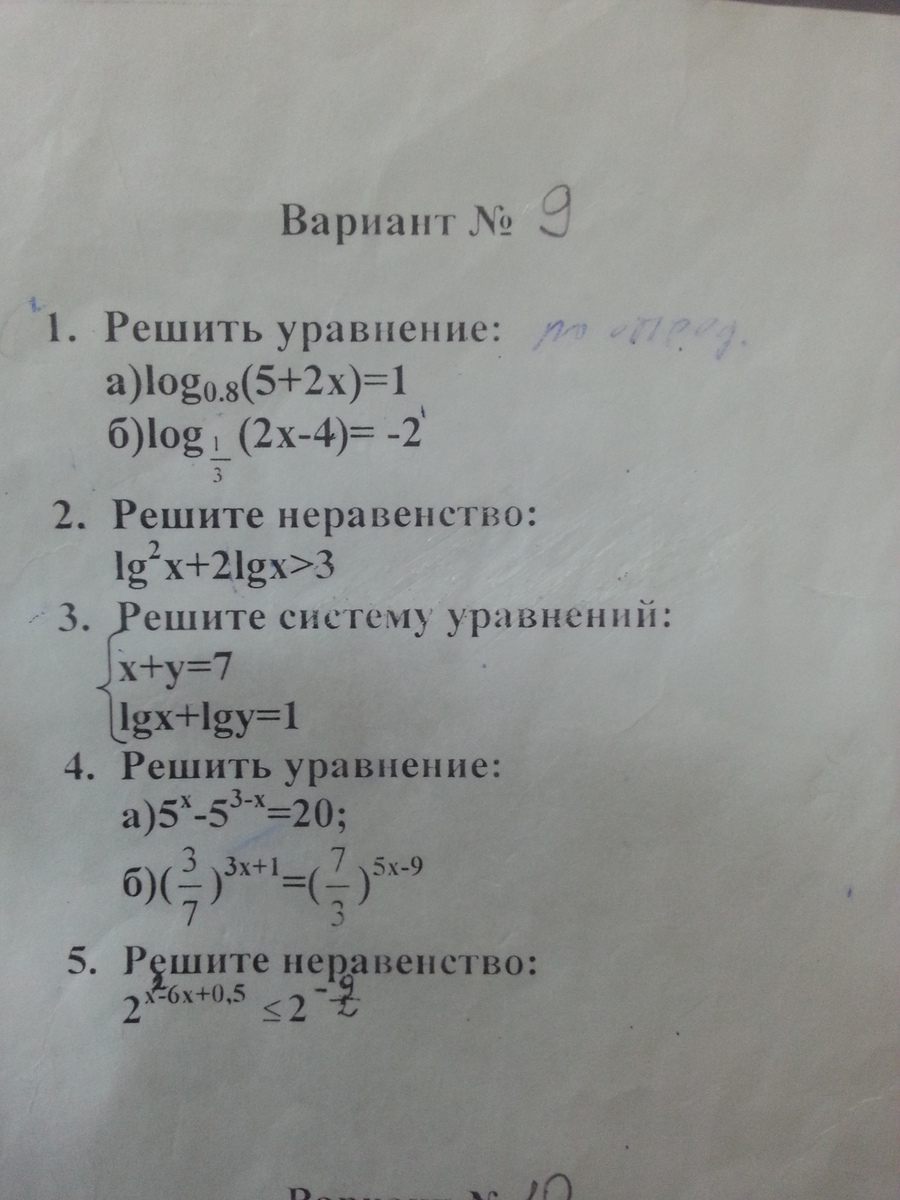 Вариант № 9
1. Решить уравнение: по опред.
а)log₀.₈(5+2x)=1
б)log 1/3 (2x-4)= -2
2. Решите неравенство:
lg²x+2lgx>3
3. Решите систему уравнений:
{x+y=7
lgx+lgy=1
4. Решить уравнение:
а)5^x-5^(3-x)=20;
б)(3/7)^(3x+1)=(7/3)^(5x-9)
5. Решите неравенство:
2^(x²-6x+0,5) ≤2^(-9/2)
Вариант № 10